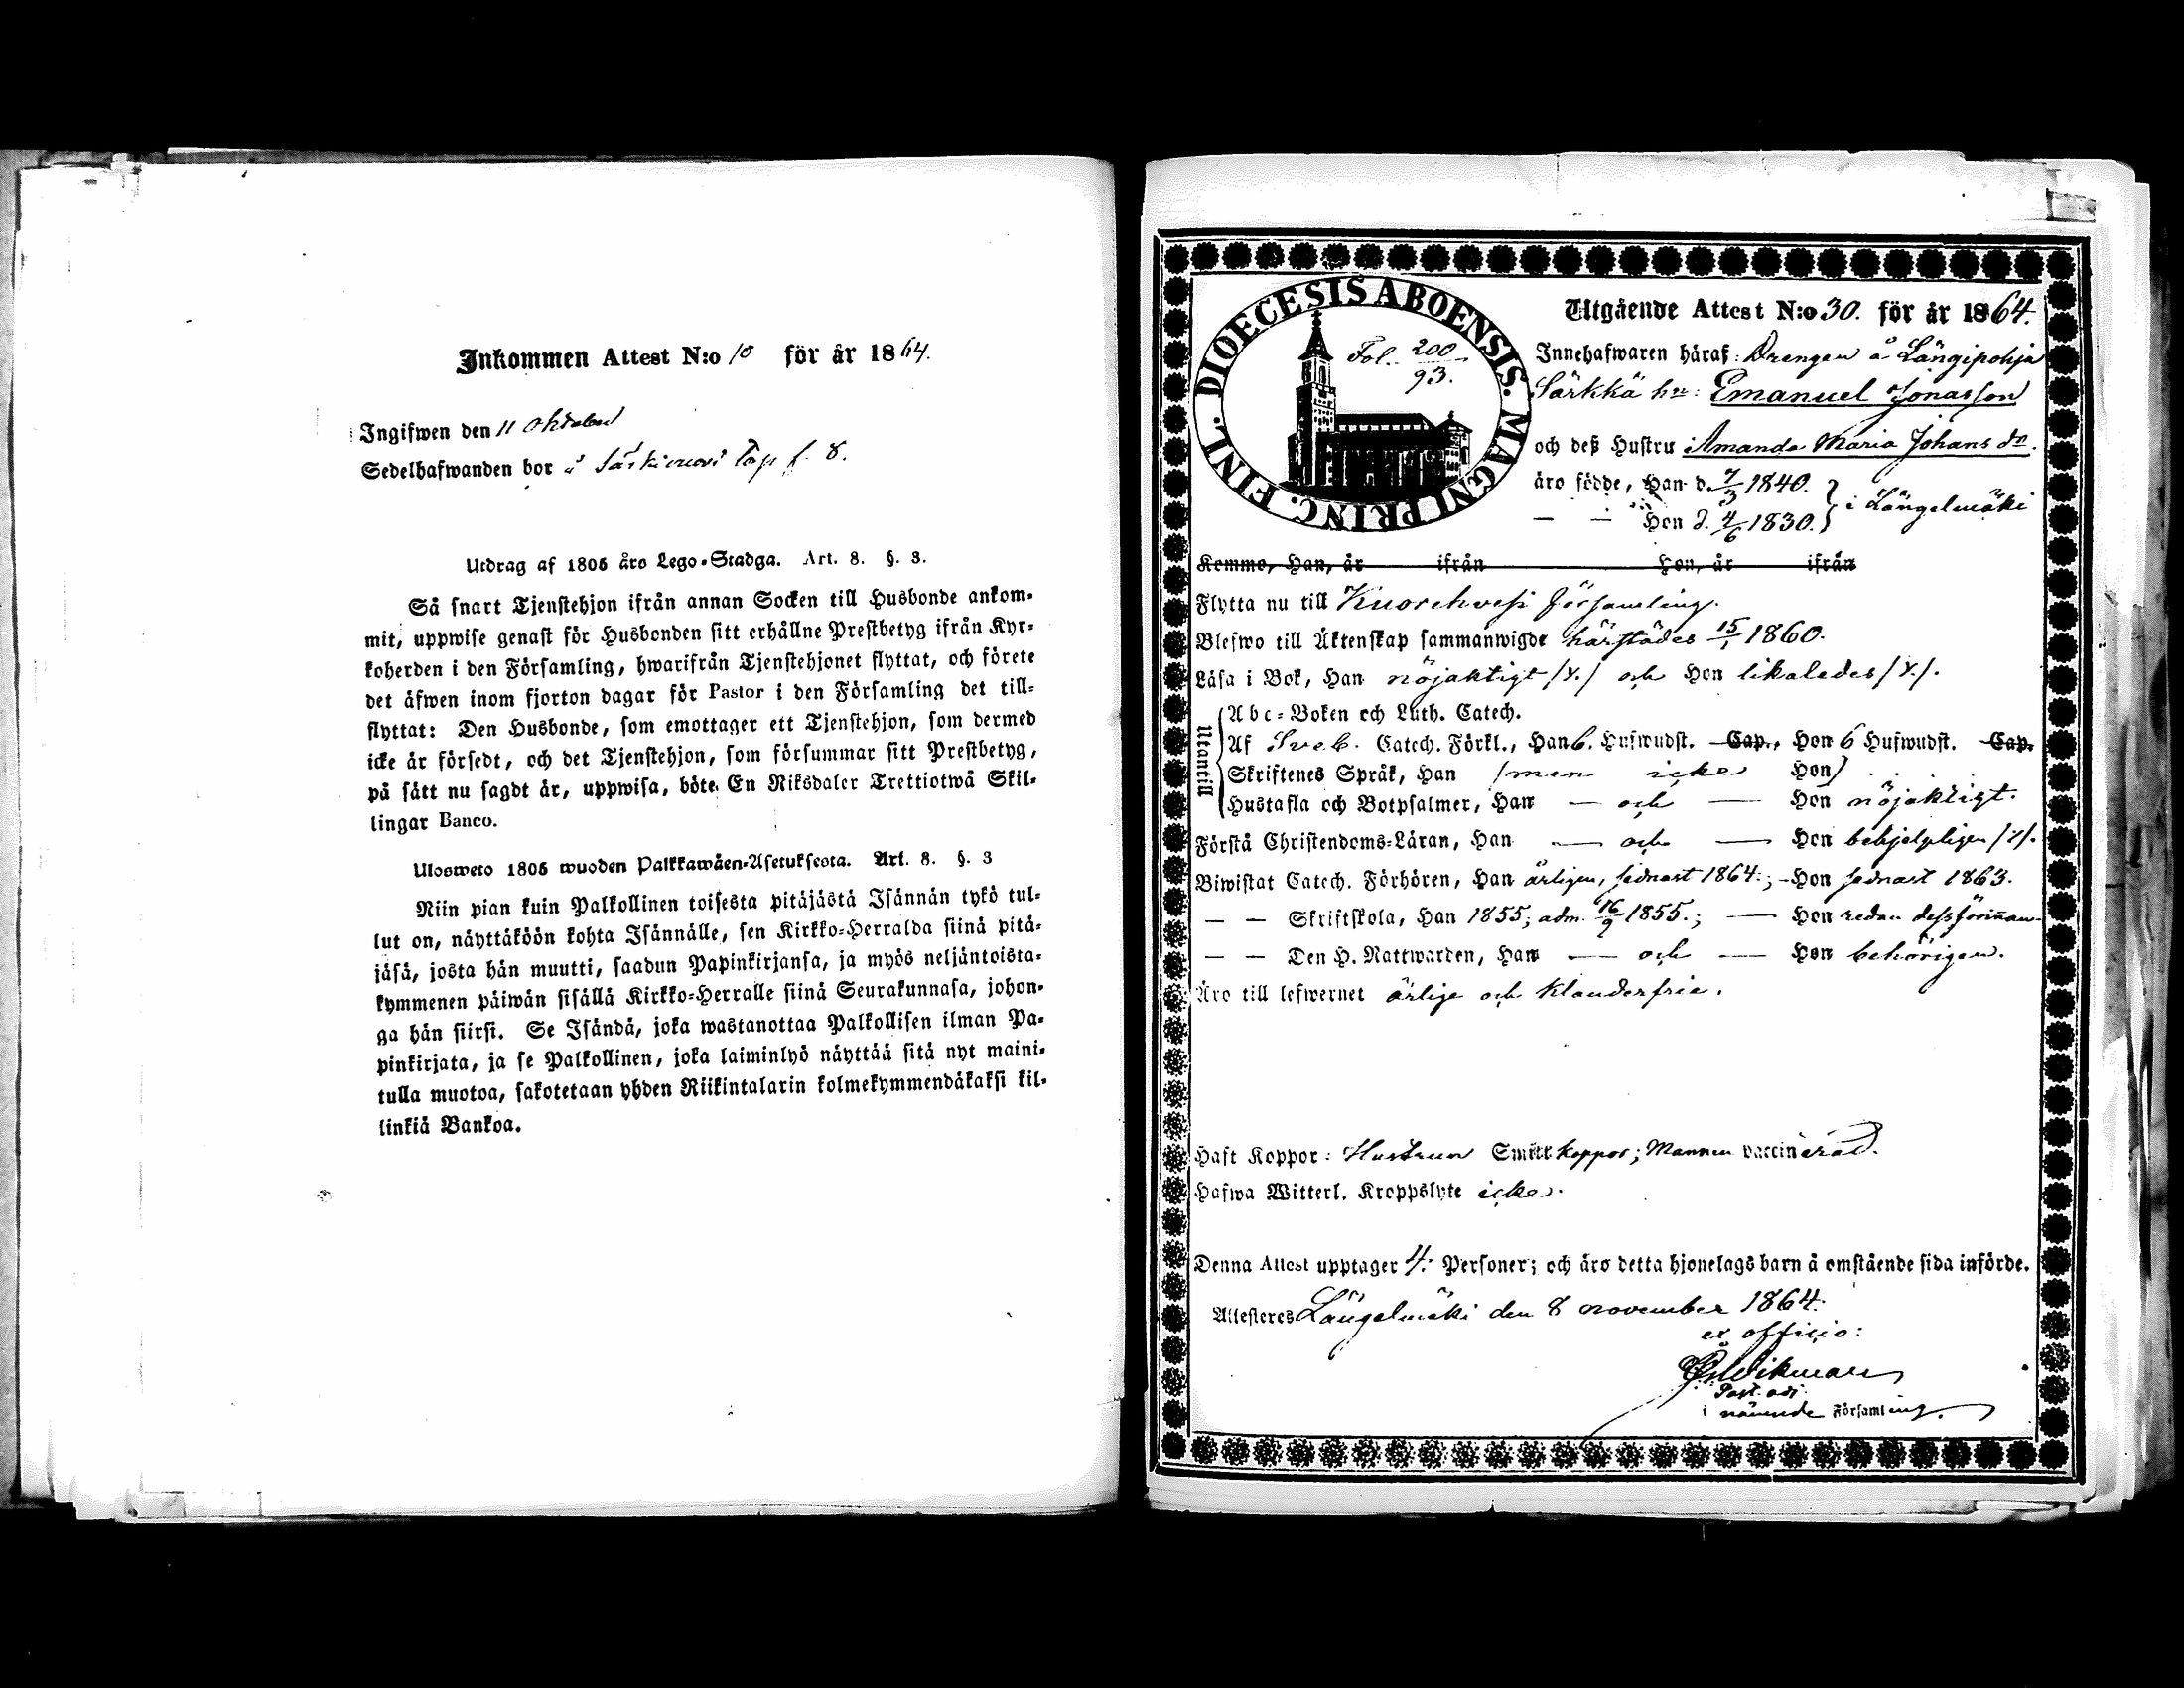 Inkommen Attest N:o 10 för år 1864.
Ingifwen den 11 Oktober
Sedelhafwanden bor å torp f. 8.
Utdrag af 1805 års Lego-Stadga. Art. 8. §. 3.
Så snart Tjenstehjon ifrån annan Socken till Husbonde ankom-
mit, uppwise genast för Husbonden sitt erhållne Prestbetyg ifrån Kyr-
koherden i den Församling, hwarifrån Tjenstehjonet flyttat, och förete
det äfwen inom fjorton dagar för Pastor i den Församling det till-
flyttat: Den Husbonde, som emottager ett Tjenstehjon, som dermed
icke är försedt, och det Tjenstehjon, som försummar sitt Prestbetyg,
på sätt nu sagdt är, uppwisa, böte En Riksdaler Trettiotwå Skil-
lingar Banco.
Ulosweto 1805 wuoden Palkkawäen-Asetuksesta. Art. 8. §. 3
Niin pian kuin Palkollinen toisesta pitäjästä Isännän tykö tul-
lut on, näyttäköön kohta Isännälle, sen Kirkko-Herralda siinä pitä-
jäsä, josta hän muutti, saadun Papinkirjansa, ja myös neljäntoista-
kymmenen päiwän sisällä Kirkko-Herralle siinä Seurakunnasa, johon-
ga hän siirsi. Se Isändä, joka wastanottaa Palkollisen ilman Pa-
pinkirjata, ja se Palkollinen, joka laiminlyö näyttää sitä nyt maini-
tulla muotoa, sakotetaan yhden Riikintalarin kolmekymmendäkaksi kil-
linkiä Bankoa.
DIOECESIS ABOENSIS. MAGNI PRINC. FINL.
Fol. 200
93.
Utgående Attest N:o 30. för år 1864.
Innehafwaren häraf: Drengen å Längipohja
Särkkä hn: Emanuel Jonasson
och deß Hustru Amanda Maria Johans dr.
äro födde, Han d. 7/3 1840. } i Längelmäki
— — Hon d. 4/6 1830. }
Komme, Han, år ifrån Hon, år ifrån
Flytta nu till Kuorehvesi församling.
Blefwo till Äktenskap sammanwigde härstädes 15/1 1860.
Läsa i Bok, Han nöjaktigt /v./ och Hon likaledes /v./.
Utantill
Abc-Boken och Luth. Catech.
Af Sveb. Catech. Förkl., Han 6. Hufwudst. Cap., Hon 6 Hufwudst. Cap.
Skriftenes Språk, Han /men icke Hon/
Hustafla och Botpsalmer, Han — och — Hon nöjaktigt.
Förstå Christendoms-Läran, Han — och — Hon behjelpligen /v/.
Biwistat Catech. Förhören, Han årligen, sednast 1864.; — Hon sednast 1863.
— — Skriftskola, Han 1855; adm. 16/9 1855.; — Hon redan dessförinnan
— — Den H. Nattwarden, Han — och — Hon behörigen.
Äro till lefwernet ärlige och klanderfrie.
Haft Koppor: Hustrun Smittkoppor; Mannen vaccinerad.
Hafwa Witterl. Kroppslyte icke.
Denna Attest upptager 4. Personer; och äro detta hjonelags barn å omstående sida införde.
Attesteres Längelmäki den 8 november 1864.
ex officio:
Wikman
Past. adj.
i nämnde Församling.